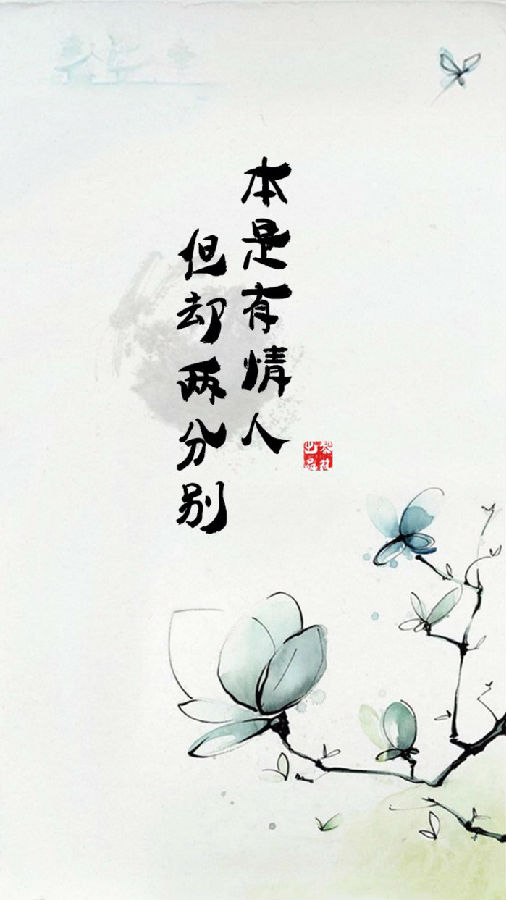 本是有情人
但却两分别